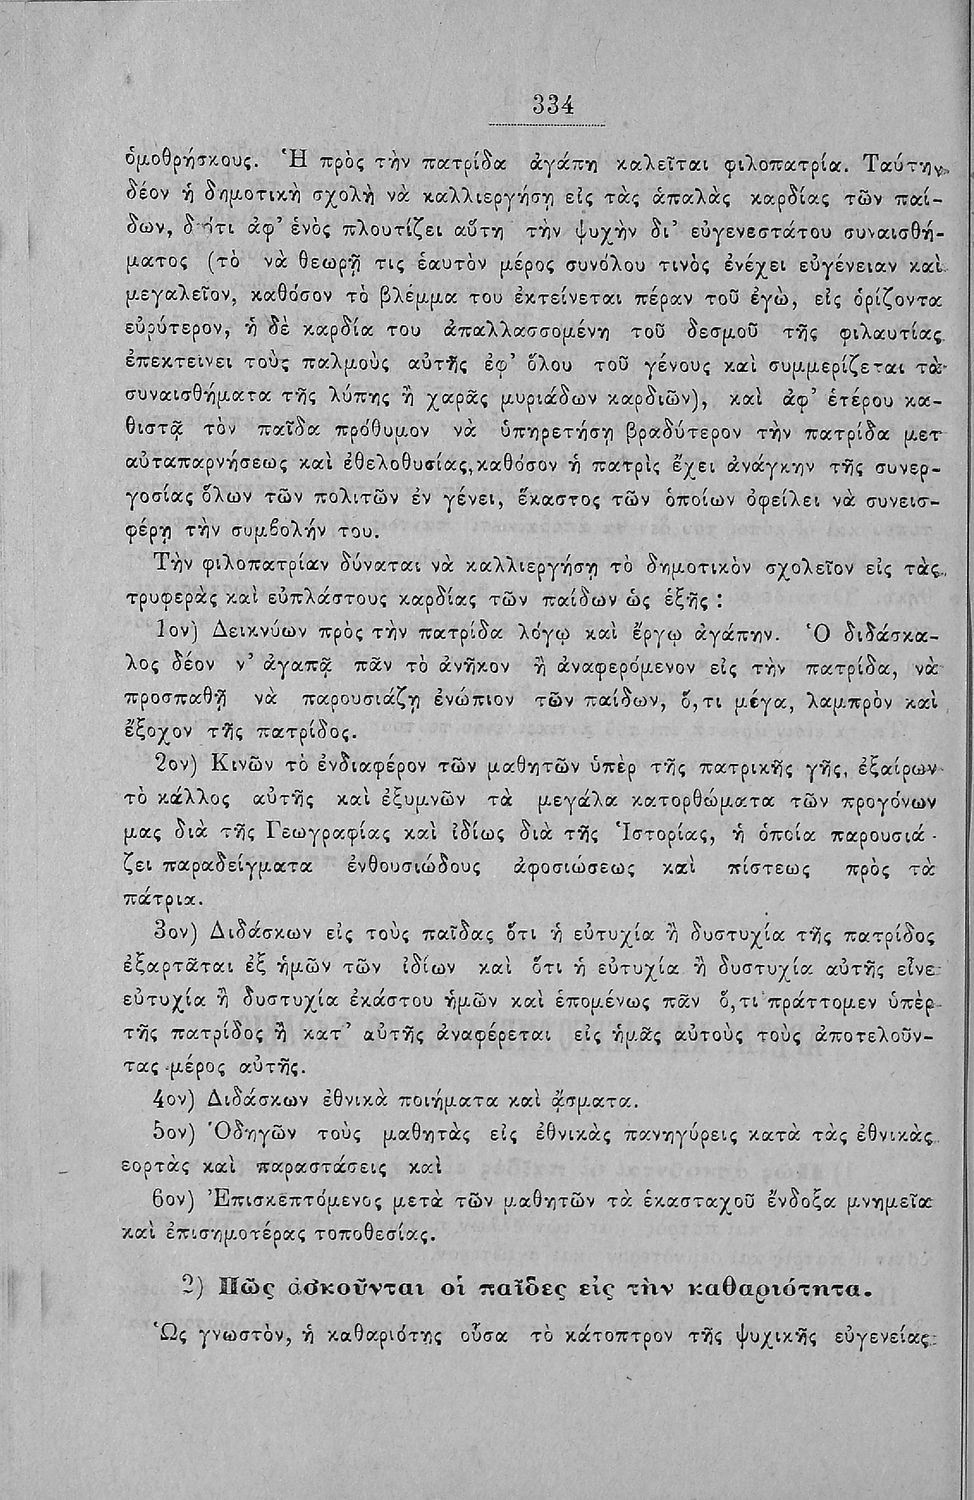 334
ὁμοθρήσκους. Ἡ πρὸς τὴν πατρίδα ἀγάπη καλεῖται φιλοπατρία. Ταύτην
δέον ἡ δημοτικὴ σχολὴ νὰ καλλιεργήσῃ εἰς τὰς ἁπαλὰς καρδίας τῶν παί-
δων, διότι ἀφ’ ἑνὸς πλουτίζει αὕτη τὴν ψυχὴν δι’ εὐγενεστάτου συναισθή-
ματος (τὸ νὰ θεωρῇ τις ἑαυτὸν μέρος συνόλου τινὸς ἐνέχει εὐγένειαν καὶ
μεγαλεῖον, καθόσον τὸ βλέμμα του ἐκτείνεται πέραν τοῦ ἐγὼ, εἰς ὁρίζοντα
εὐρύτερον, ἡ δὲ καρδία του ἀπαλλασσομένη τοῦ δεσμοῦ τῆς φιλαυτίας
ἐπεκτείνει τοὺς παλμοὺς αὐτῆς ἐφ’ ὅλου τοῦ γένους καὶ συμμερίζεται τὰ
συναισθήματα τῆς λύπης ἢ χαρᾶς μυριάδων καρδιῶν), καὶ ἀφ’ ἑτέρου κα-
θιστᾷ τὸν παῖδα πρόθυμον νὰ ὑπηρετήσῃ βραδύτερον τὴν πατρίδα μετ
αὐταπαρνήσεως καὶ ἐθελοθυσίας, καθόσον ἡ πατρὶς ἔχει ἀνάγκην τῆς συνερ-
γοσίας ὅλων τῶν πολιτῶν ἐν γένει, ἕκαστος τῶν ὁποίων ὀφείλει νὰ συνεισ-
φέρῃ τὴν συμβολήν του.
Τὴν φιλοπατρίαν δύναται νὰ καλλιεργήσῃ τὸ δημοτικὸν σχολεῖον εἰς τὰς
τρυφερὰς καὶ εὐπλάστους καρδίας τῶν παίδων ὡς ἑξῆς :
1ον) Δεικνύων πρὸς τὴν πατρίδα λόγῳ καὶ ἔργῳ ἀγάπην. Ὁ διδάσκα-
λος δέον ν’ ἀγαπᾷ πᾶν τὸ ἀνῆκον ἢ ἀναφερόμενον εἰς τὴν πατρίδα, νὰ
προσπαθῇ νὰ παρουσιάζῃ ἐνώπιον τῶν παίδων, ὅ,τι μέγα, λαμπρὸν καὶ
ἔξοχον τῆς πατρίδος.
2ον) Κινῶν τὸ ἐνδιαφέρον τῶν μαθητῶν ὑπὲρ τῆς πατρικῆς γῆς, ἐξαίρων
τὸ κάλλος αὐτῆς καὶ ἐξυμνῶν τὰ μεγάλα κατορθώματα τῶν προγόνων
μας διὰ τῆς Γεωγραφίας καὶ ἰδίως διὰ τῆς Ἱστορίας, ἡ ὁποία παρουσιά-
ζει παραδείγματα ἐνθουσιώδους ἀφοσιώσεως καὶ πίστεως πρὸς τὰ
πάτρια.
3ον) Διδάσκων εἰς τοὺς παῖδας ὅτι ἡ εὐτυχία ἢ δυστυχία τῆς πατρίδος
ἐξαρτᾶται ἐξ ἡμῶν τῶν ἰδίων καὶ ὅτι ἡ εὐτυχία ἢ δυστυχία αὐτῆς εἶνε
εὐτυχία ἢ δυστυχία ἑκάστου ἡμῶν καὶ ἑπομένως πᾶν ὅ,τι πράττομεν ὑπὲρ
τῆς πατρίδος ἢ κατ’ αὐτῆς ἀναφέρεται εἰς ἡμᾶς αὐτοὺς τοὺς ἀποτελοῦν-
τας μέρος αὐτῆς.
4ον) Διδάσκων ἐθνικὰ ποιήματα καὶ ᾄσματα.
5ον) Ὁδηγῶν τοὺς μαθητὰς εἰς ἐθνικὰς πανηγύρεις κατὰ τὰς ἐθνικὰς
εορτὰς καὶ παραστάσεις καὶ
6ον) Ἐπισκεπτόμενος μετὰ τῶν μαθητῶν τὰ ἑκασταχοῦ ἔνδοξα μνημεῖα
καὶ ἐπισημοτέρας τοποθεσίας.
2) Πῶς ἀσκοῦνται οἱ παῖδες εἰς τὴν καθαριότητα.
Ὡς γνωστὸν, ἡ καθαριότης οὖσα τὸ κάτοπτρον τῆς ψυχικῆς εὐγενείας